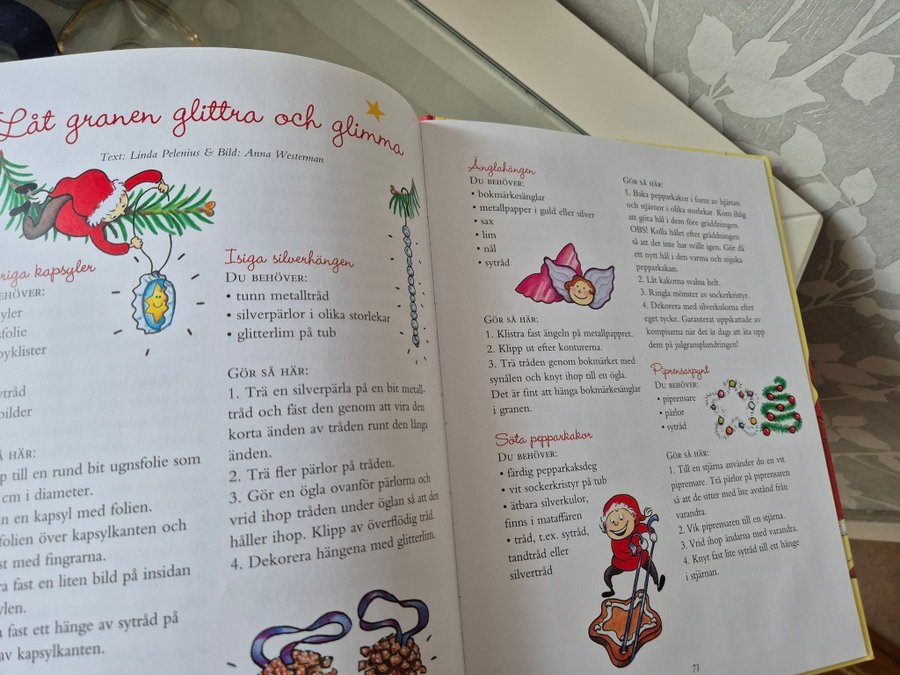 Låt granen glittra och glimma
Text: Linda Pelenius & Bild: Anna Westerman
riga kapsyler
EHÖVER:
yler
sfolie
pyklister
sytråd
bilder
Å HÄR:
p till en rund bit ugnsfolie som
cm i diameter.
n en kapsyl med folien.
folien över kapsylkanten och
st med fingrarna.
ra fast en liten bild på insidan
ylen.
fast ett hänge av sytråd på
av kapsylkanten.
Isiga silverhängen
DU BEHÖVER:
• tunn metalltråd
• silverpärlor i olika storlekar
• glitterlim på tub
GÖR SÅ HÄR:
1. Trä en silverpärla på en bit metall-
tråd och fäst den genom att vira den
korta änden av tråden runt den långa
änden.
2. Trä fler pärlor på tråden.
3. Gör en ögla ovanför pärlorna och
vrid ihop tråden under öglan så att den
håller ihop. Klipp av överflödig tråd.
4. Dekorera hängena med glitterlim.
Änglahängen
DU BEHÖVER:
• bokmärkesänglar
• metallpapper i guld eller silver
• sax
• lim
• nål
• sytråd
GÖR SÅ HÄR:
1. Klistra fast ängeln på metallpappret.
2. Klipp ut efter konturerna.
3. Trä tråden genom bokmärket med
synålen och knyt ihop till en ögla.
Det är fint att hänga bokmärkesänglar
i granen.
Söta pepparkakor
DU BEHÖVER:
• färdig pepparkaksdeg
• vit sockerkristyr på tub
• ätbara silverkulor,
finns i mataffären
• tråd, t.ex. sytråd,
tandtråd eller
silvertråd
GÖR SÅ HÄR:
1. Baka pepparkakor i form av hjärtan
och stjärnor i olika storlekar. Kom ihåg
att göra hål i dem före gräddningen.
OBS! Kolla hålet efter gräddningen
så att det inte har svällt igen. Gör då
ett nytt hål i den varma och mjuka
pepparkakan.
2. Låt kakorna svalna helt.
3. Ringla mönster av sockerkristyr.
4. Dekorera med silverkulorna efter
eget tycke. Garanterat uppskattade av
kompisarna när det är dags att äta upp
dem på julgransplundringen!
Piprensarpynt
DU BEHÖVER:
• piprensare
• pärlor
• sytråd
GÖR SÅ HÄR:
1. Till en stjärna använder du en vit
piprensare. Trä pärlor på piprensaren
så att de sitter med lite avstånd från
varandra.
2. Vik piprensaren till en stjärna.
3. Vrid ihop ändarna med varandra.
4. Knyt fast lite sytråd till ett hänge
i stjärnan.
71